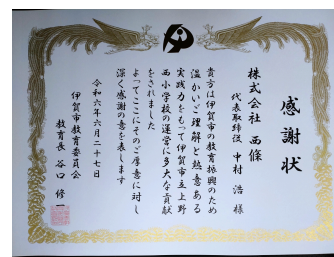 感謝状
株式会社 西條
代表取締役 中村 浩 様
貴方は伊賀市の教育振興のため
温かいご理解と熱意ある
実践力をもって伊賀市立上野
西小学校の運営に多大な貢献
をされました
よってここにそのご厚意に対し
深く感謝の意を表します
令和六年六月二十七日
伊賀市教育委員会
教育長 谷口 修一